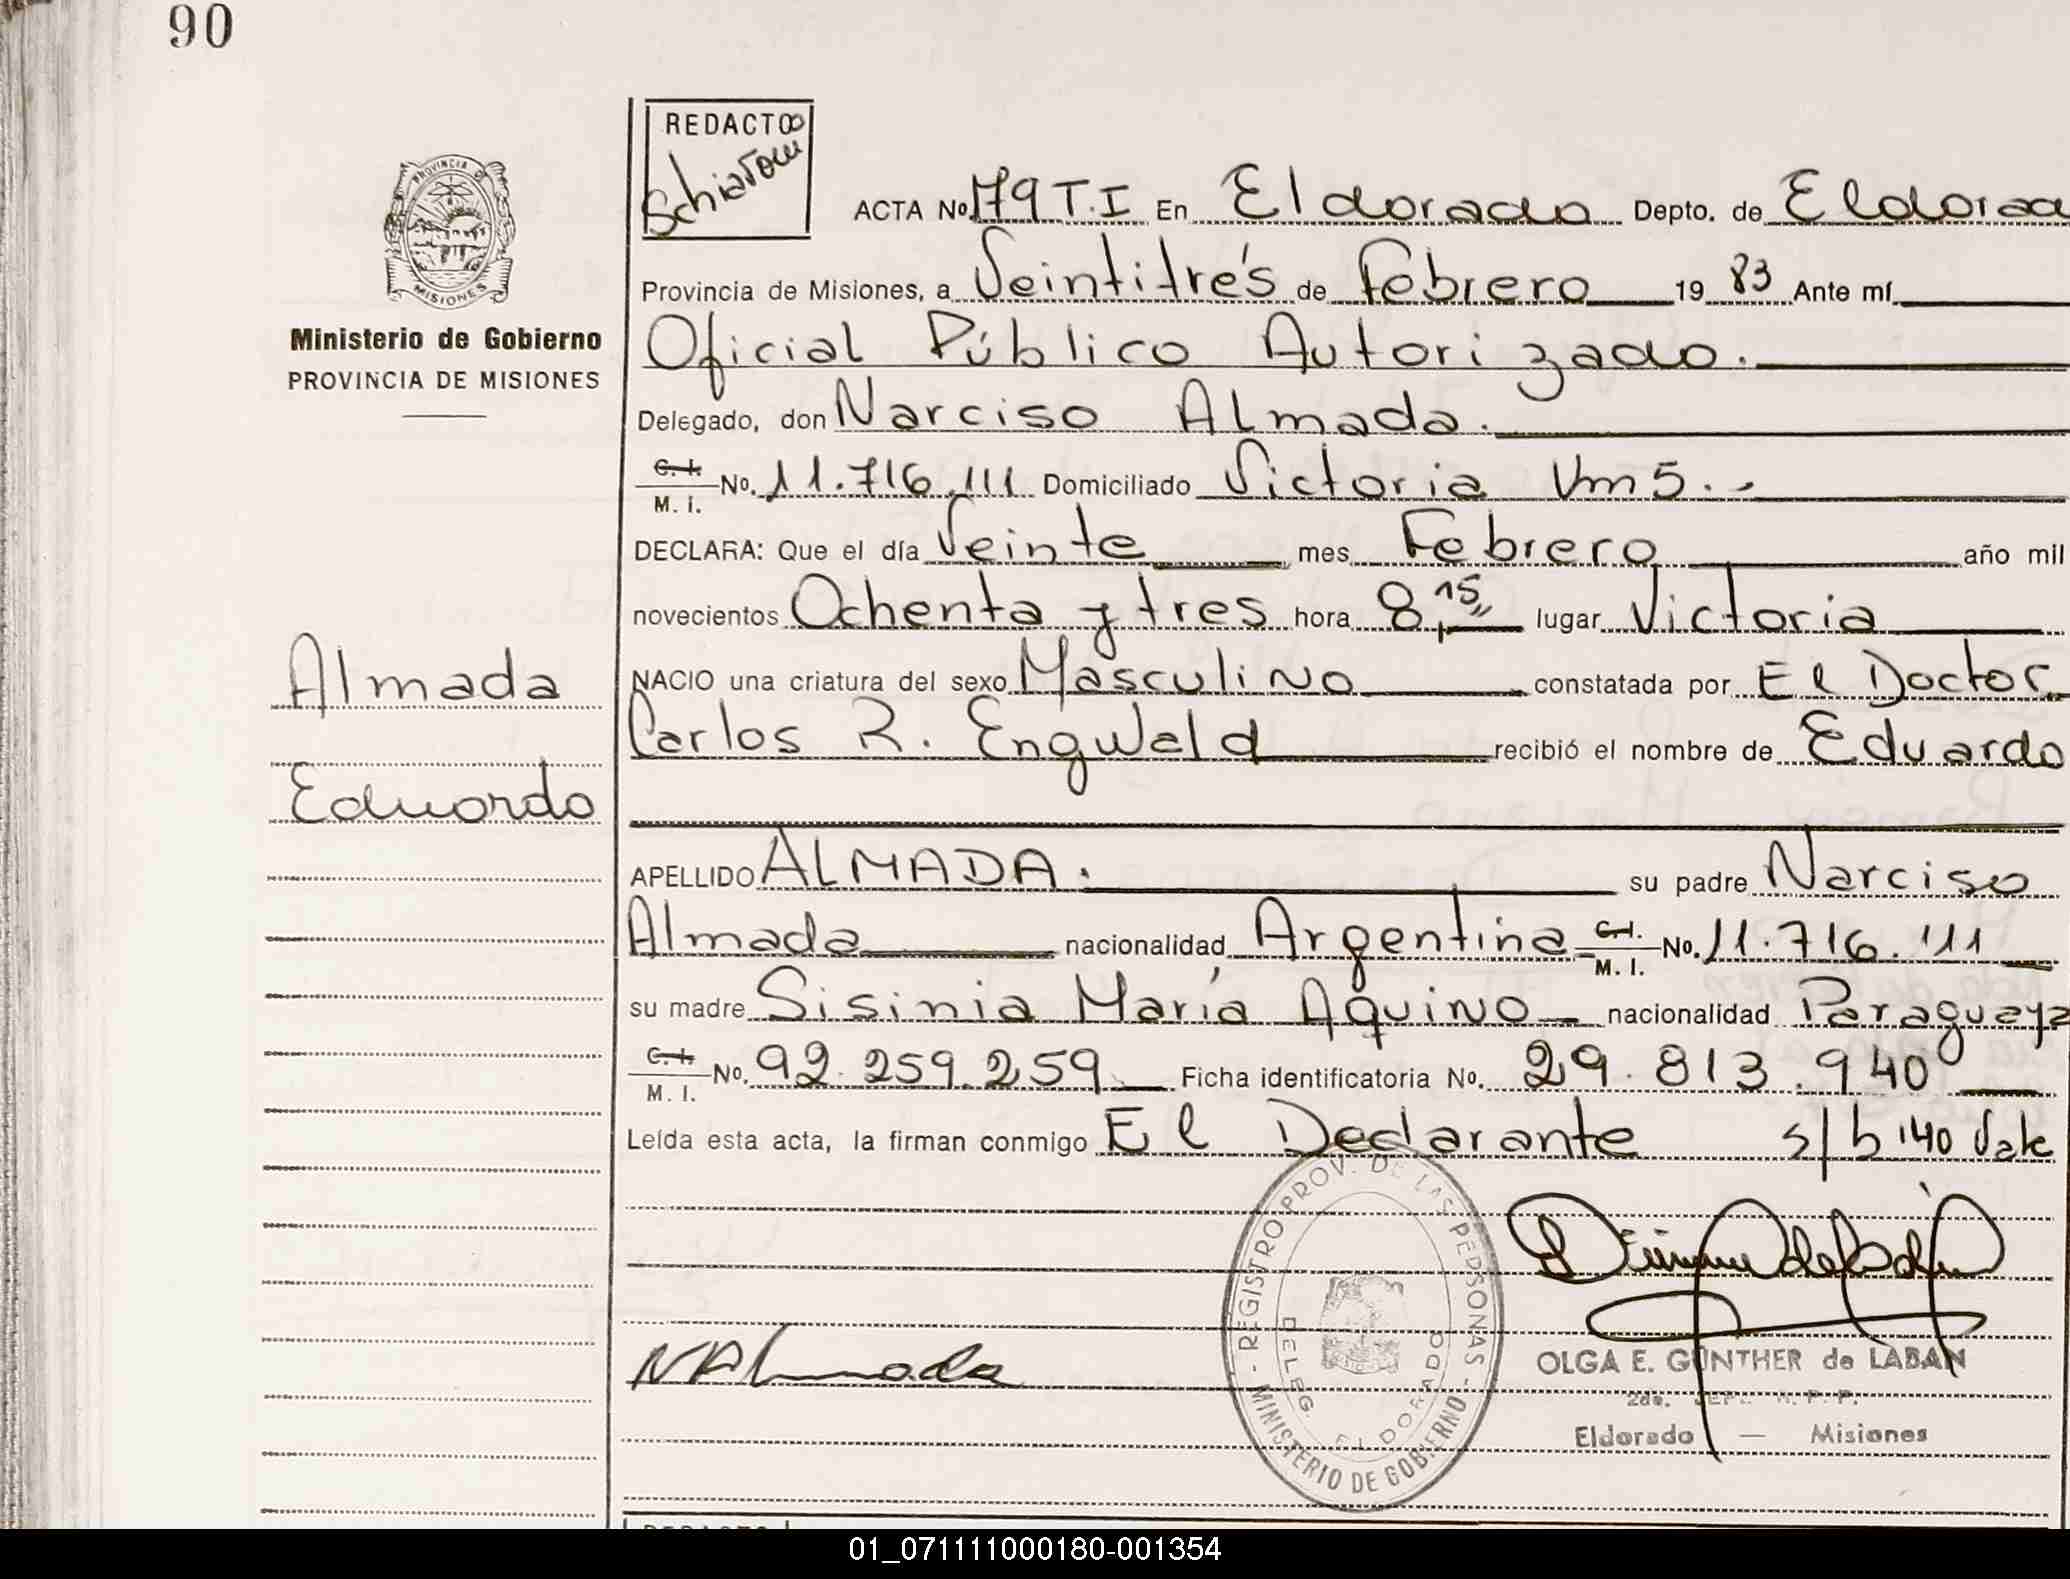 90
REDACTOR
Schiavoni
PROVINCIA DE
MISIONES
Ministerio de Gobierno
PROVINCIA DE MISIONES
Almada
Eduardo
ACTA No 179 T.I En Eldorado Depto. de Eldorad
Provincia de Misiones, a Veintitrés de Febrero 19 83 Ante mí
Oficial Público Autorizado.
Delegado, don Narciso Almada.
C. I. M. I. No. 11.716.111 Domiciliado Victoria Km 5.-
DECLARA: Que el día Veinte mes Febrero año mil
novecientos Ochenta y tres hora 8,15 lugar Victoria
NACIO una criatura del sexo Masculino constatada por El Doctor
Carlos R. Engwald recibió el nombre de Eduardo
APELLIDO ALMADA. su padre Narciso
Almada nacionalidad Argentina C. I. M. I. No. 11.716.111
su madre Sisinia María Aquino nacionalidad Paraguaya
C. I. M. I. No. 92.259.259 Ficha identificatoria No. 29.813.940
Leída esta acta, la firman conmigo El Declarante s/b 140 Vale
NAlmada
REGISTRO PROV. DE LAS PERSONAS - MINISTERIO DE GOBIERNO -
DELEG. ELDORADO
OLGA E. GUNTHER de LABAN
Eldorado — Misiones
01_071111000180-001354